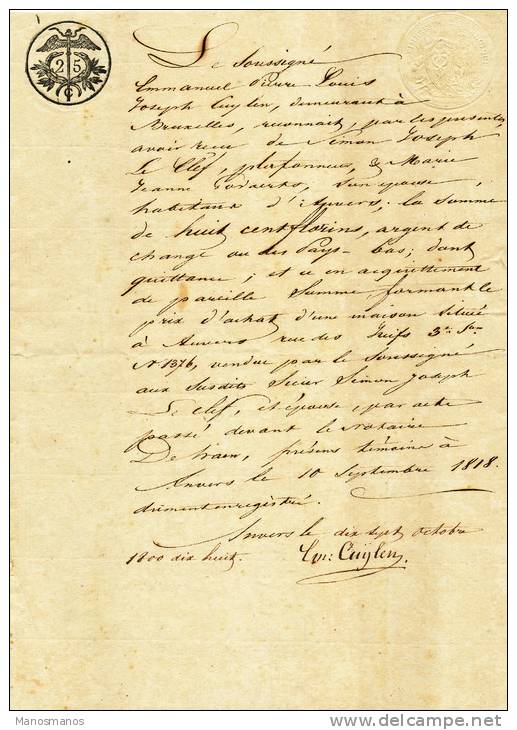 25
Cs
Le Soussigné
Emmanuel Pierre Louis
Joseph Cuylen, demeurant à
Bruxelles, reconnait, par les presentes
avoir recu de Simon Joseph
Le Clef, plafonneur, & Marie
Jeanne Godaerts, son épouse,
habitans d'Anvers, la somme
de huit cent florins, argent de
change ou des Pays-Bas; dont
quittance; et ce en acquittement
de pareille Somme formant le
prix d'achat d'une maison située
à Anvers rue des Juifs 3e Son
No 1376, vendue par le Soussigné
aux Susdits Sieur Simon Joseph
Le Clef, et épouse, par acte
passé devant le Notaire
De train, présens témoins à
Anvers le 10 Septembre 1818.
dument enregistré.
Anvers le dix sept Octobre
1800 dix huit. Em: Cuÿlen
Manosmanos
www.delcampe.net